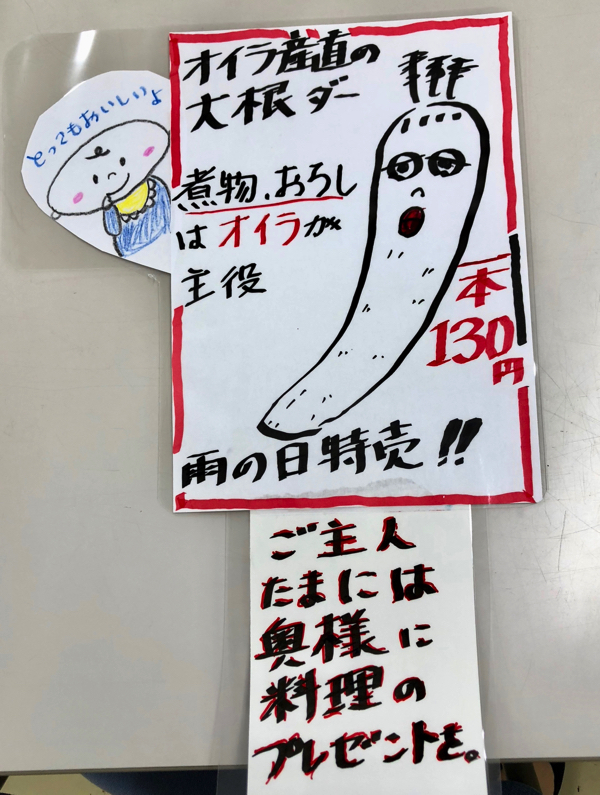 とってもおいしいよ
オイラ産直の
大根ダー
煮物、おろし
はオイラが
主役
一本
130
円
雨の日特売!!
ご主人
たまには
奥様に
料理の
プレゼントを。